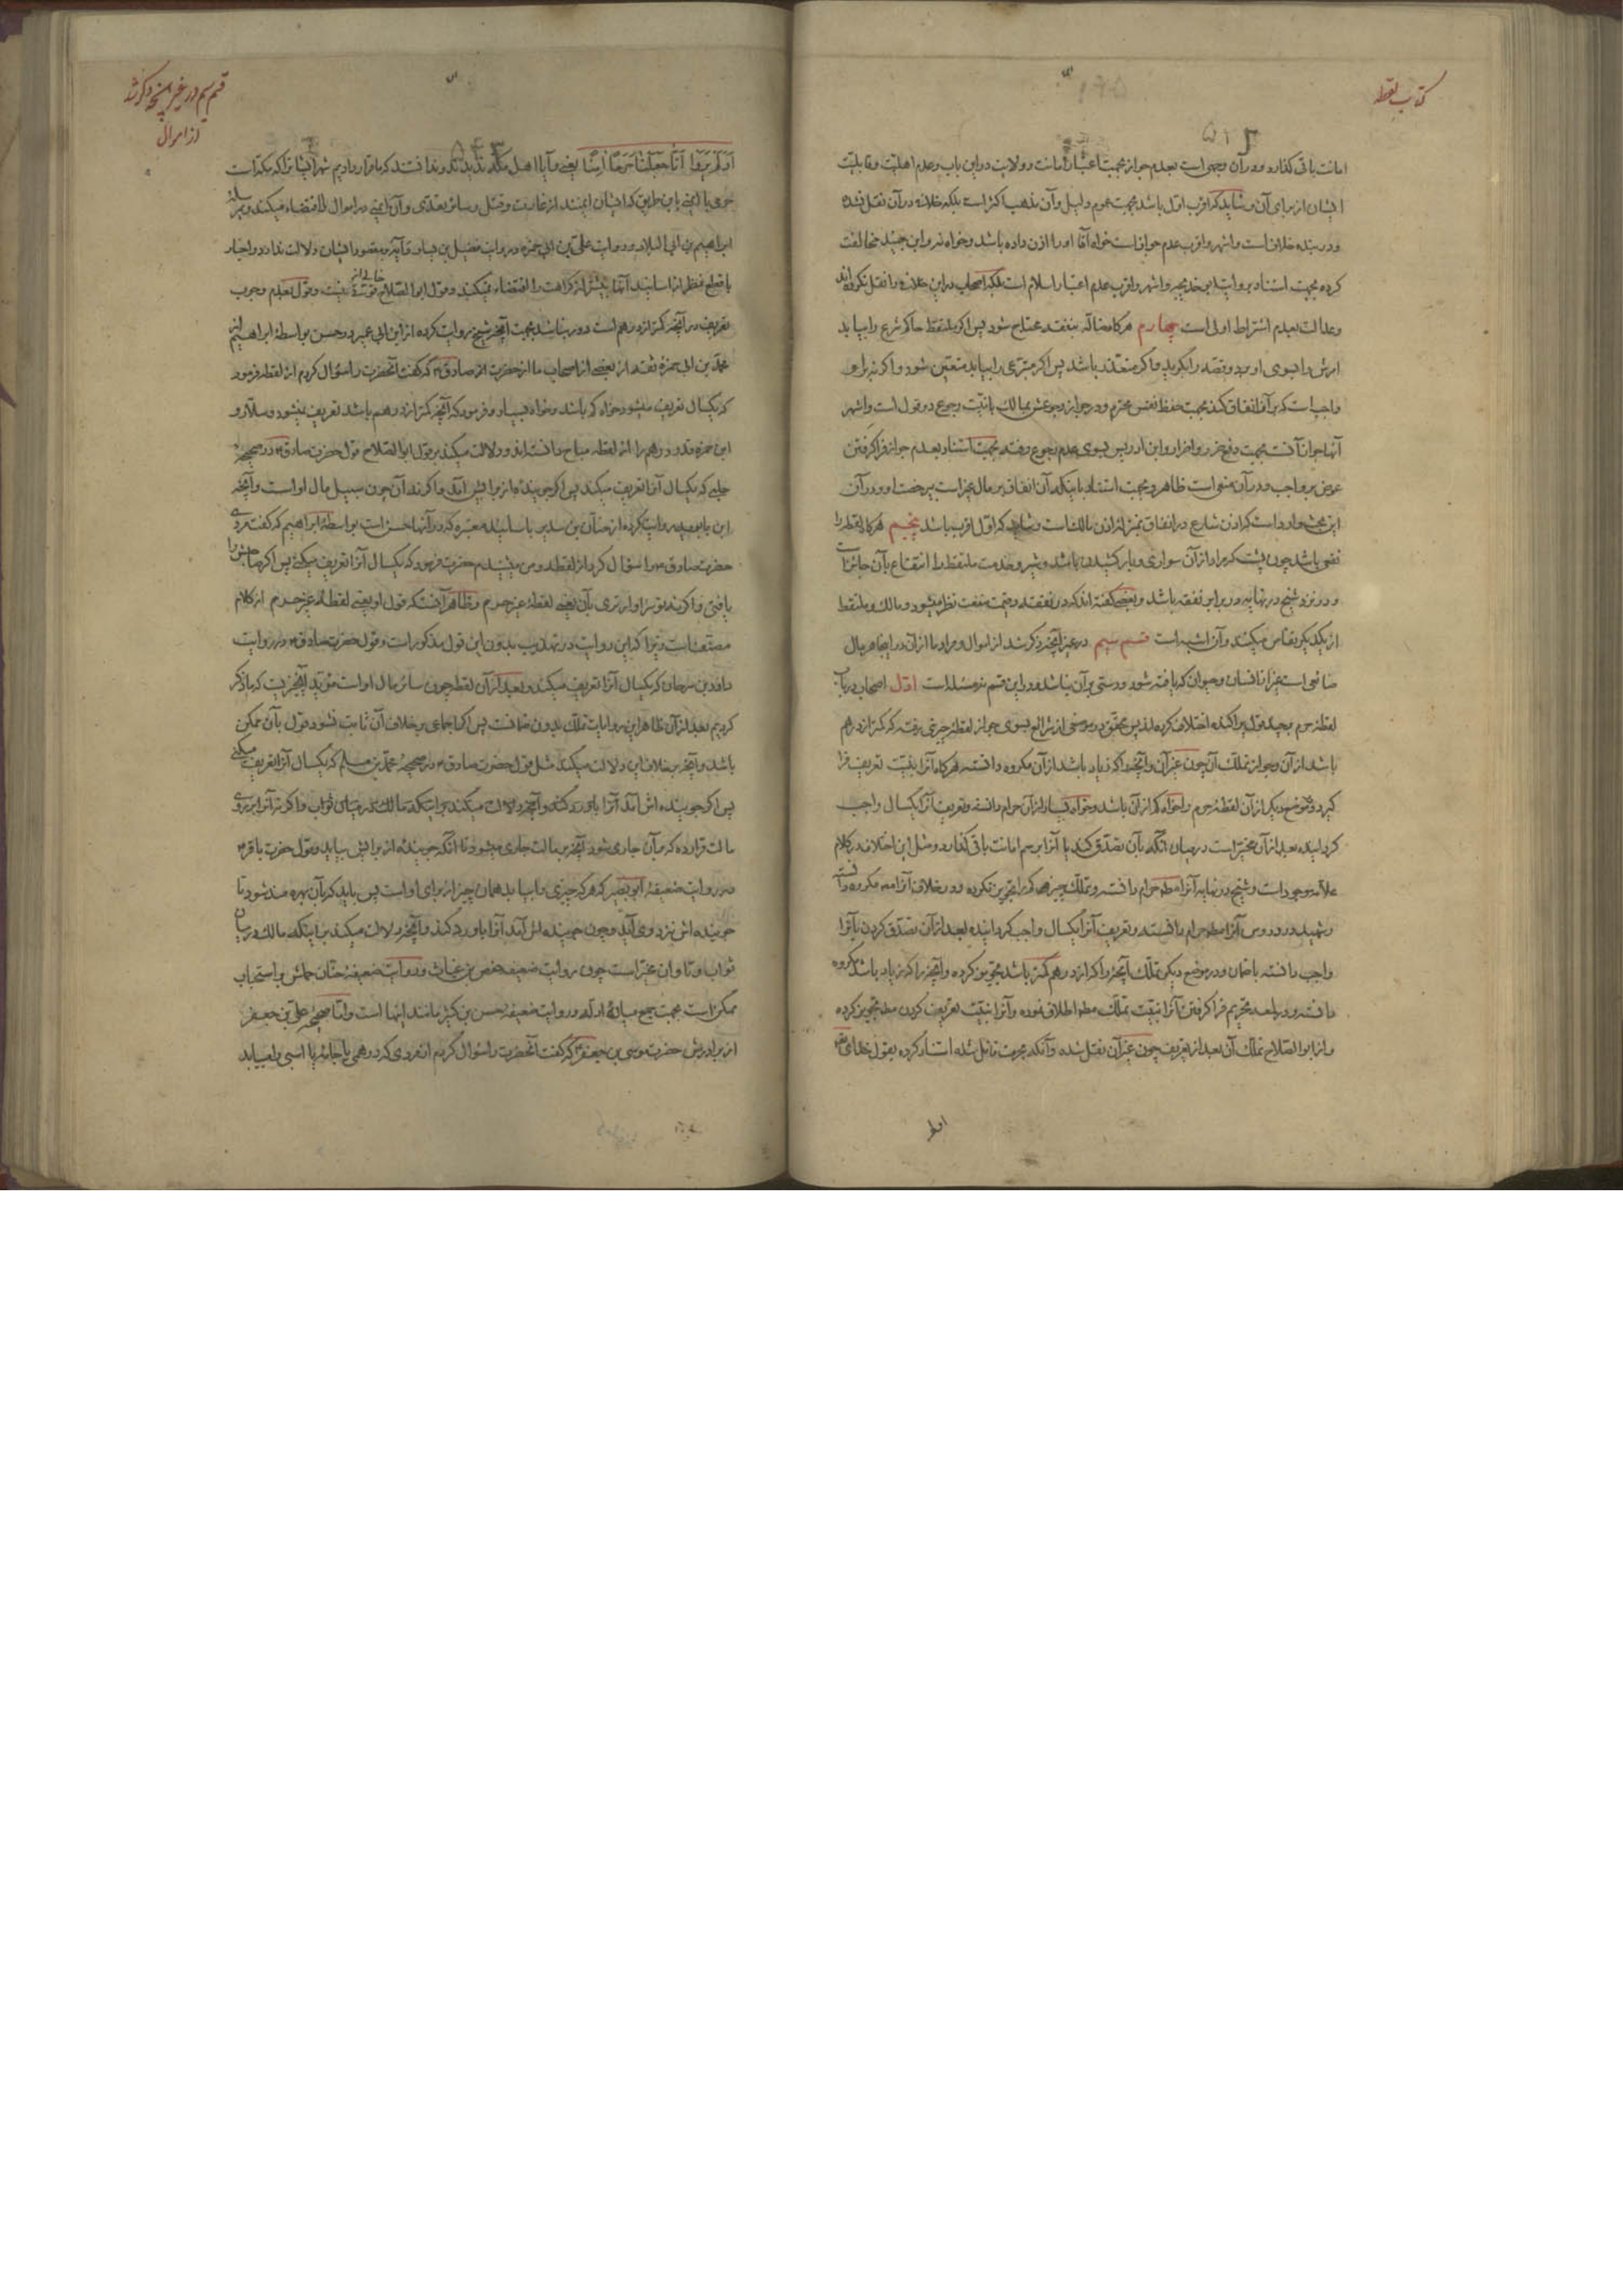 کتاب لقطه
۵۱۲
امانت باقی گذارد و در آن وجهی است بعدم جواز بجهت اعتبار امانت و ولایت در این باب و عدم اهلیت و قابلیت
ایشان از برای آن و شاید که اقرب اول باشد بجهت عموم دلیل و آن مذهب اکثر است بلکه خلافی در آن نقل نشده
و در بنده خلاف است و اشهر و اقرب عدم جواز است خواه آقا او را اذن داده باشد و خواه نه و ابن جنید مخالفت
کرده بجهت استناد بروایت ابی خدیجه و اشهر و اقرب عدم اعتبار اسلام است بلکه اصحاب در این خلاف را نقل نکرده‌اند
و عدالت بعدم اشتراط اولی است چهارم هرگاه ضاله بنفقه محتاج شود پس اگر ملتقط حاکم شرع را بیابد
امرش را بسوی او برد و قصه را بگوید و اگر متعذر باشد پس اگر متبرعی را بیابد متعین شود و اگر نه بر او
واجب است که بر آن انفاق کند بجهت حفظ نفس محترم و در جواز رجوعش بمالک با نیت رجوع دو قول است و اشهر
آنها جواز آنست بجهت دفع ضرر و اضرار و ابن ادریس بسوی عدم رجوع رفته بجهت استناد بعدم جواز فرا گرفتن
عوض بر واجب و در آن منعی است ظاهر و بجهت استناد باینکه آن انفاق بر مال غیر است بی رخصت او و در آن
این بحث وارد است که اذن شارع در انفاق بمنزله اذن مالک است و شاید که اول اقرب باشد پنجم هرگاه لقطه را
نفعی باشد چون پشت که مراد از آن سواری و بار کشیدن باشد و شیر و خدمت ملتقط را انتفاع بآن جایز است
و در نزد شیخ در نهایه در برابر نفقه باشد و بعضی گفته‌اند که در نفقه و قیمت منفعت نظر میشود و مالک و ملتقط
از یکدیگر تقاص میکنند و آن اشبه است قسم سیم در غیر آنچه ذکر شد از اموال و مراد ما از آن در اینجا هر مال
ضایعی است غیر از انسان و حیوان که یافته شود و دستی بر آن نباشد و در این قسم نیز مسئله است اول اصحاب در باب
لقطهٔ حرم بچند قول پراکنده اختلاف کرده‌اند پس محقق در موضعی از شرایع بسوی جواز لقطهٔ چیزی رفته که کمتر از درهم
باشد از آن و جواز تملک آن چون غیر آن و آنچه را که زیاد باشد از آن مکروه دانسته هرگاه آنرا بنیت تعریف فرا
گیرد و در موضع دیگر از آن لقطهٔ حرم را خواه کم از آن باشد و خواه بسیار از آن حرام دانسته و تعریف آنرا یکسال واجب
گردانیده بعد از آن مخیر است در میان آنکه بآن تصدق کند یا آنرا برسم امانت باقی گذارد و مثل این اختلاف در کلام
علامه موجود است و شیخ در نهایه آنرا مطلقا حرام دانسته و تملک چیز کم را تجویز نکرده و در خلاف آنرا مکروه دانسته
و شهید در دروس آنرا مطلقا حرام دانسته و تعریف آنرا یکسال واجب گردانیده بعد از آن تصدق کردن بآنرا
واجب دانسته با ضمان و در موضع دیگر تملک آنچه را که از درهم کمتر باشد تجویز کرده و آنچه را که زیاد باشد مکروه
دانسته و در لمعه تحریم فرا گرفتن آنرا بنیت تملک مطلقا اطلاق نموده و آنرا بنیت تعریف کردن مطلقا تجویز کرده
و از ابو الصلاح تملک آن بعد از تعریف چون غیر آن نقل شده و آنکه بحرمت قائل شده استناد کرده بقول خدایتعالی
اولم
قسم سیم در غیر آنچه ذکر شد
از اموال
اَوَلَمْ يَرَوْا اَنّا جَعَلْنا حَرَمًا آمِنًا یعنی و آیا اهل مکه ندیدند و ندانستند که ما قرار دادیم شهر ایشانرا که مکه است
حرمی با ایمنی باین طریق که ایشان ایمنند از غارت و قتل و سائر تعدی و آن ایمنی در اموال را اقتضاء میکند و مرسلهٔ
ابراهیم بن ابی البلاد و روایت علی بن ابی حمزه و روایت فضیل بن یسار و آیه بمقصود ایشان دلالت ندارد و اخبار
با قطع نظر از اسانید آنها بیش از کراهت را اقتضاء نمیکند و قول ابو الصلاح خالی از قوتی نیست و قول بعدم وجوب
تعریف در آنچه کمتر از درهم است دور نباشد بجهت آنچه شیخ روایت کرده از ابن ابی عمیر در حسن بواسطهٔ ابراهیم از
محمد بن ابی حمزه ثقه از بعضی از اصحاب ما از حضرت امام صادق ع که گفت آنحضرت را سؤال کردم از لقطه فرمود
که یکسال تعریف میشود خواه کم باشد و خواه بسیار و فرمود که آنچه کمتر از درهم باشد تعریف نمیشود و سلار و
ابن حمزه قدر درهم را از لقطه مباح دانسته‌اند و دلالت میکند بر قول ابو الصلاح قول حضرت صادق ع در صحیحهٔ
حلبی که یکسال آنرا تعریف میکند پس اگر جوینده‌ای از برایش آید و اگر نه آن چون سبیل مال او است و آنچه
ابن بابویه روایت کرده از حنان بن سدیر باسانید معتبره که در آنها حسن است بواسطهٔ ابراهیم که گفت مردی
حضرت صادق ع را سؤال کرد از لقطه و من میشنیدم حضرت فرمود که یکسال آنرا تعریف میکنی پس اگر صاحبش را
یافتی و اگر نه تو سزاوارتری بآن یعنی لقطهٔ غیر حرم و ظاهر آنست که قول او یعنی لقطهٔ غیر حرم از کلام
مصنف است و چرا که این روایت در تهذیب بدون این قول مذکور است و قول حضرت صادق ع در روایت
داود بن سرحان که یکسال آنرا تعریف میکند و بعد از آن لقطه چون سائر مال او است مؤید آنچیزیست که ما ذکر
کردیم بعد از آن ظاهر این روایات تملک بدون ضمانست پس اگر اجماعی بر خلاف آن ثابت نشود قول بآن ممکن
باشد و آنچه بر خلاف این دلالت میکند مثل قول حضرت صادق ع در صحیحهٔ محمد بن مسلم که یکسال آنرا تعریف میکنی
پس اگر جوینده‌اش آمد آنرا باو رد کند و آنچه دلالت میکند بر اینکه مالک در میان ثواب و اگر نه آنرا بر روی
مالت قرار ده که بر آن جاری شود آنچه بر مالت جاری میشود تا آنکه جوینده از برایش بیاید و قول حضرت باقر ع
در روایت ضعیفهٔ ابو بصیر که هر که چیزی را بیابد همان چیز از برای او است پس باید که بآن بهره‌مند شود تا
جوینده‌اش نزد وی آید و چون جوینده‌اش آمد آنرا باو رد کند و آنچه دلالت میکند بر اینکه مالک در میان
ثواب و تاوان مخیر است چون روایت ضعیفهٔ حفص بن غیاث و روایت ضعیفهٔ حنان حملش بر استحباب
ممکن است بجهت جمع میانهٔ ادله و روایت ضعیفهٔ حسن بن کثیر مانند اینها است و اما صحیحهٔ علی بن جعفر
از برادرش حضرت موسی بن جعفر ع که گفت آنحضرت را سؤال کردم از مردی که درهمی یا جامه یا اسبی را میابد